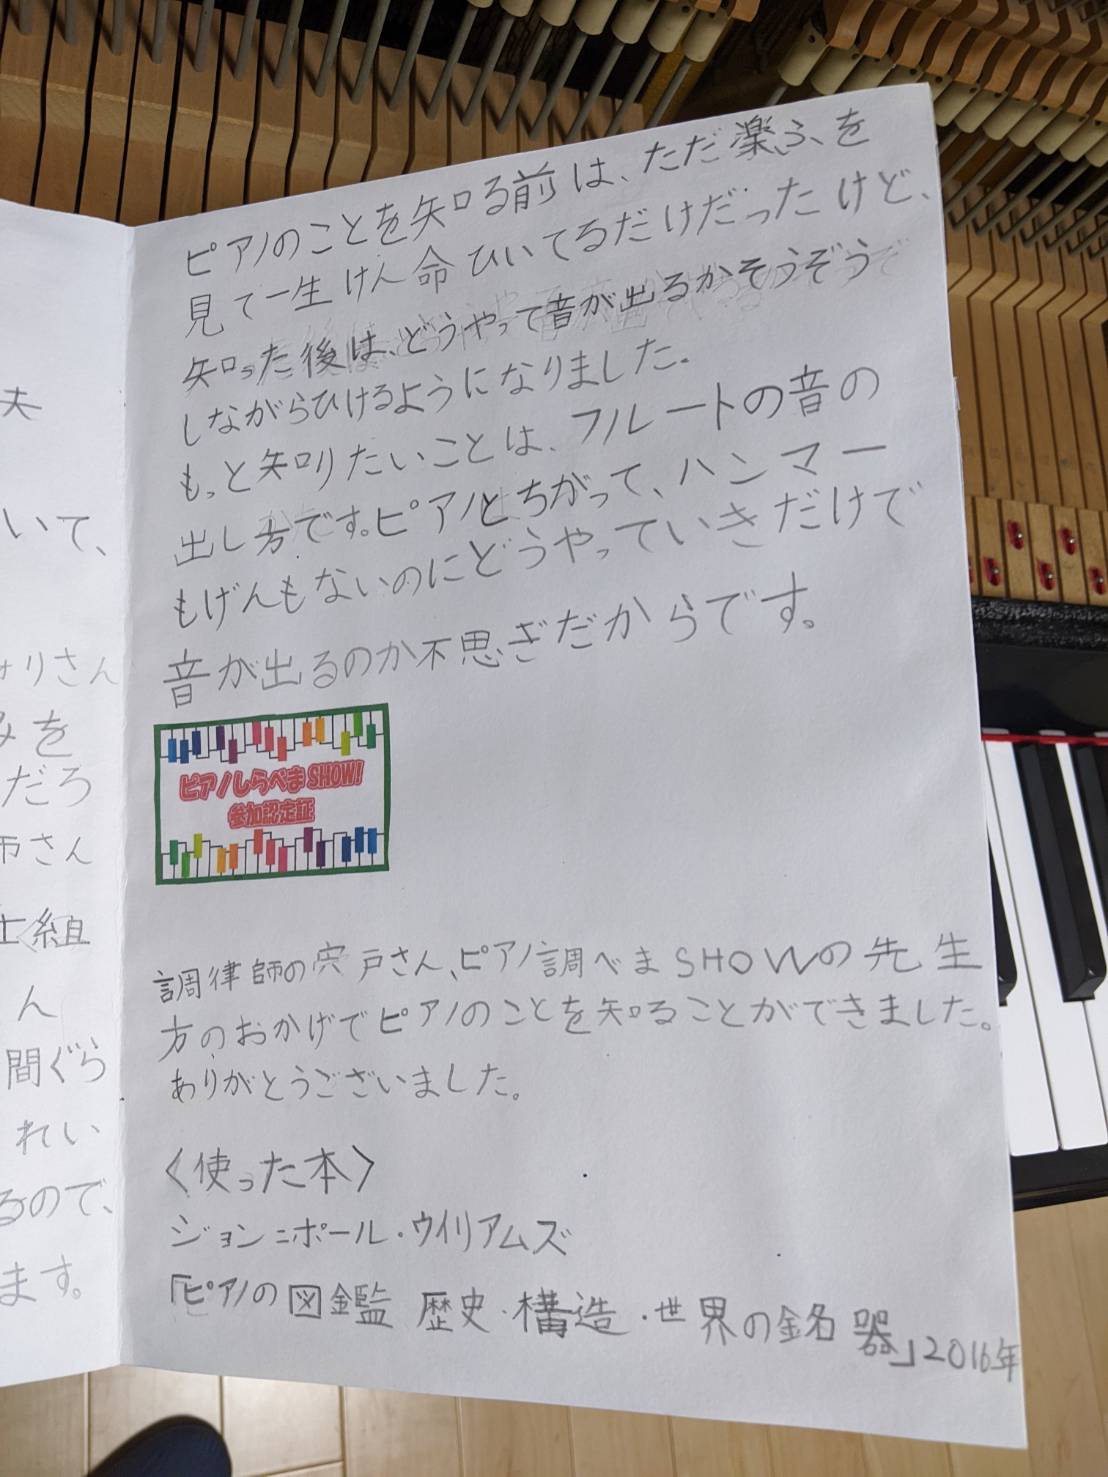 ピアノのことを知る前は、ただ楽ふを
見て一生けん命ひいてるだけだったけど、
知った後は、どうやって音が出るかそうぞう
しながらひけるようになりました。
もっと知りたいことは、フルートの音の
出し方です。ピアノとちがって、ハンマー
もげんもないのにどうやっていきだけで
音が出るのか不思ぎだからです。
ピアノしらべまSHOW!
参加認定証
調律師の宍戸さん、ピアノ調べまSHOWの先生
方のおかげでピアノのことを知ることができました。
ありがとうございました。
〈使った本〉
ジョン=ポール・ウイリアムズ
「ピアノの図鑑 歴史・構造・世界の銘器」2016年
夫
いて、
りさん
みを
だろ
さん
組
ん
間ぐら
れい
るので、
ます。